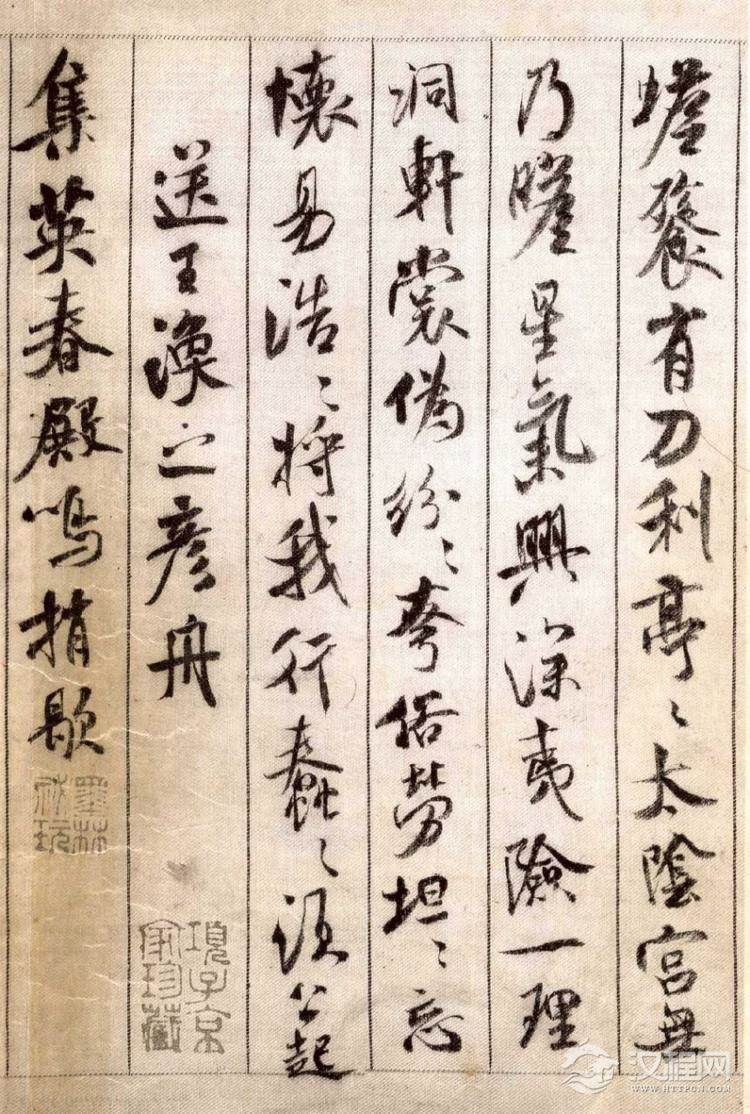 蟾餮有刀利亭〻太陰宮無
乃瞻星氣興深夷險一理
洞軒裳偽紛〻夸俗勞坦〻忘
懷易浩〻將我行蠢〻須公起
送王渙之彥舟
項子京家珍藏
集英春殿鳴捎歇
墨林祕玩
汉程网
WWW.HTTPCN.COM